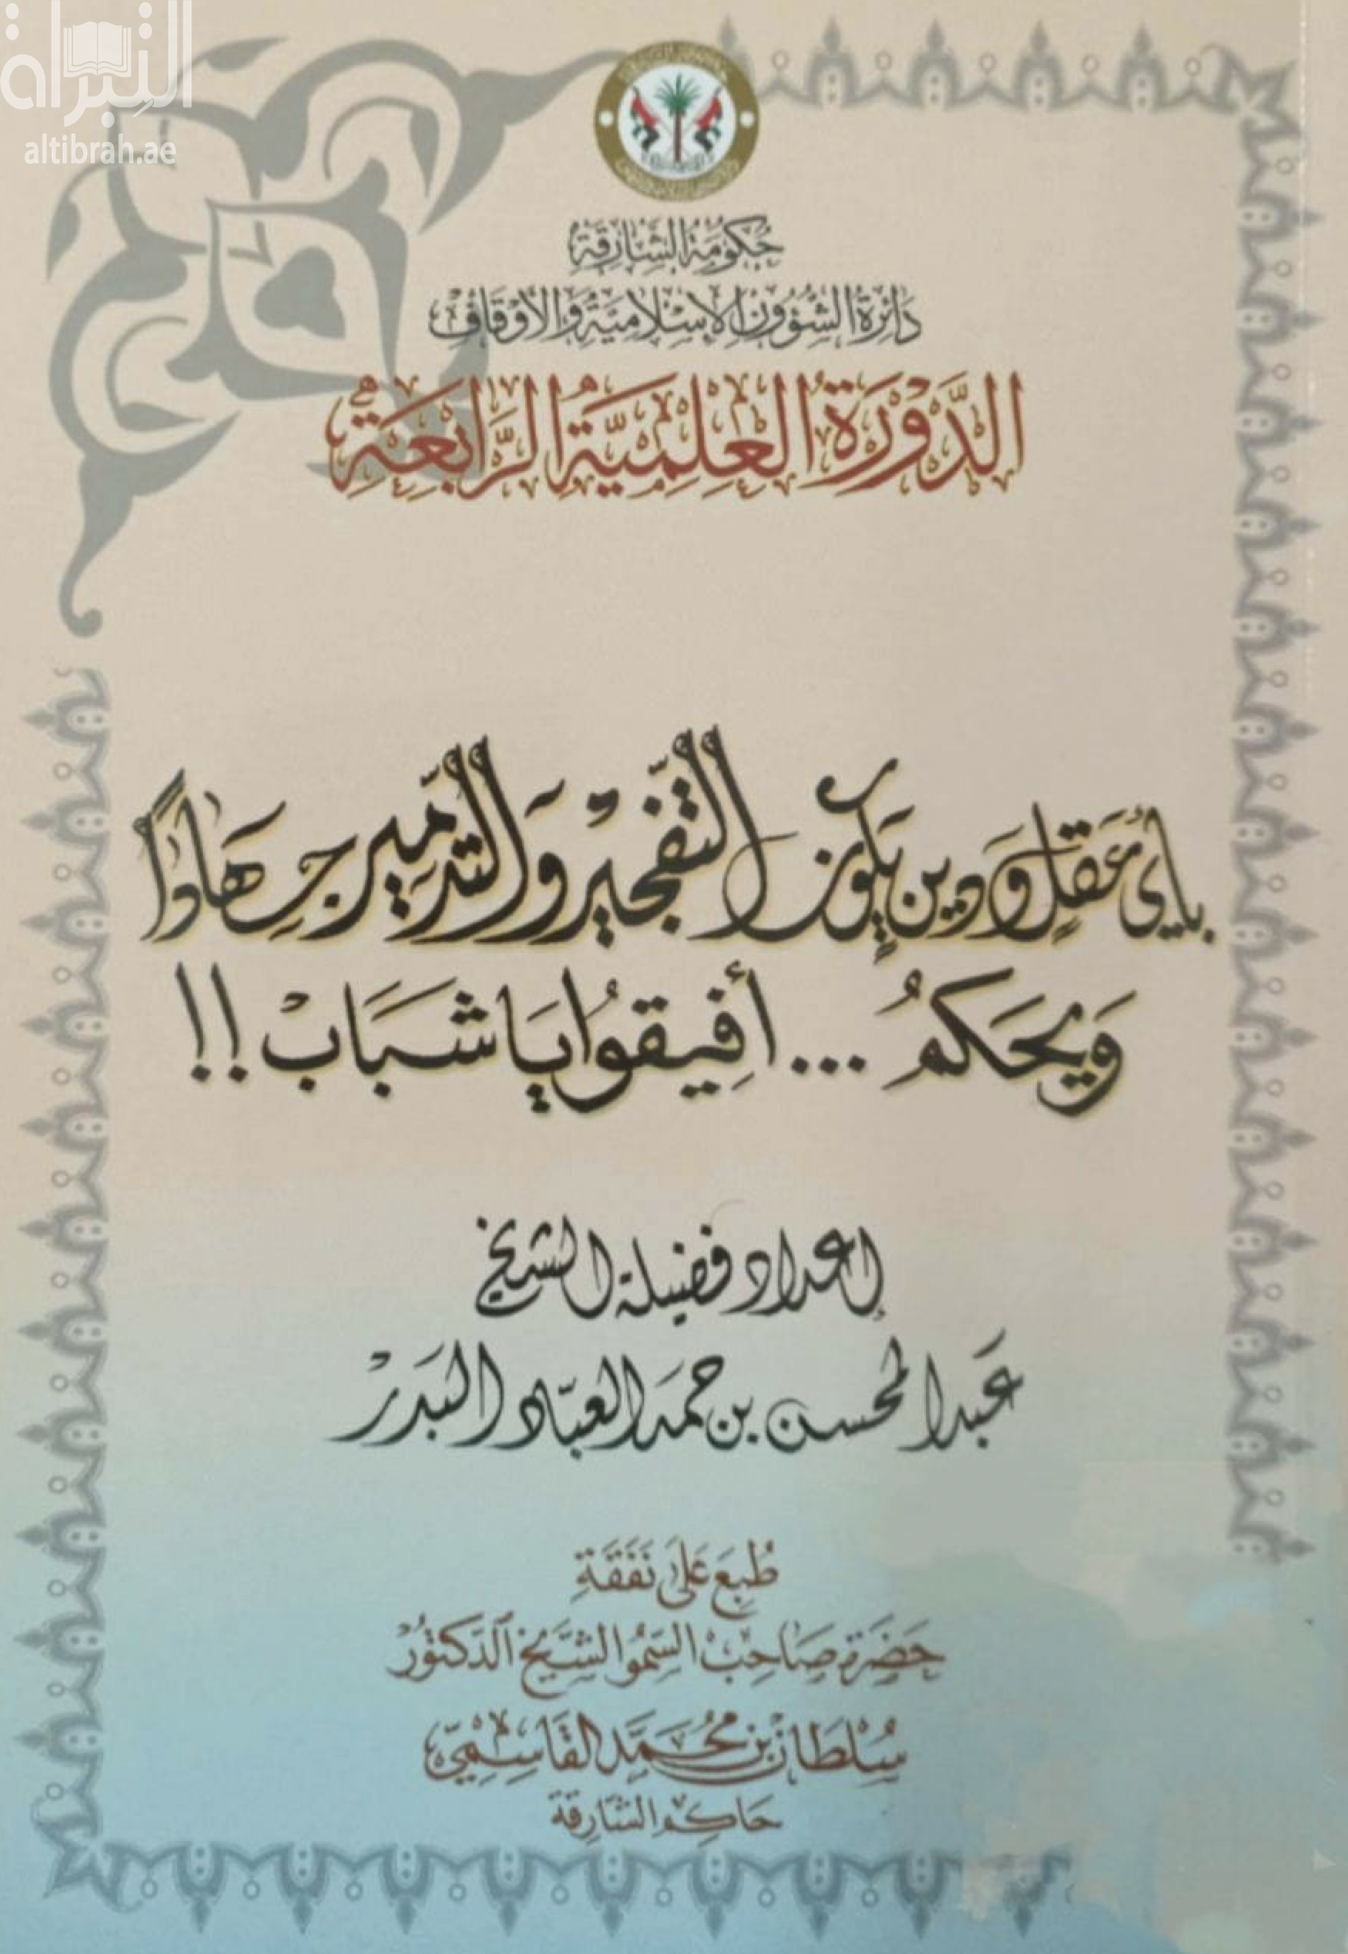 التبراة
altibrah.ae
حكومة الشارقة
دائرة الشؤون الإسلامية والأوقاف
الدَّوْرَةُ العِلْمِيَّةُ الرَّابِعَةُ
بأي عقل ودين يكون التفجير والتدمير جهادًا
ويحكم ... أفيقوا يا شباب !!
إعداد فضيلة الشيخ
عبد المحسن بن حمد العباد البدر
طُبِعَ عَلَى نَفَقَةِ
حضرة صاحب السمو الشيخ الدكتور
سلطان بن محمد القاسمي
حاكم الشارقة